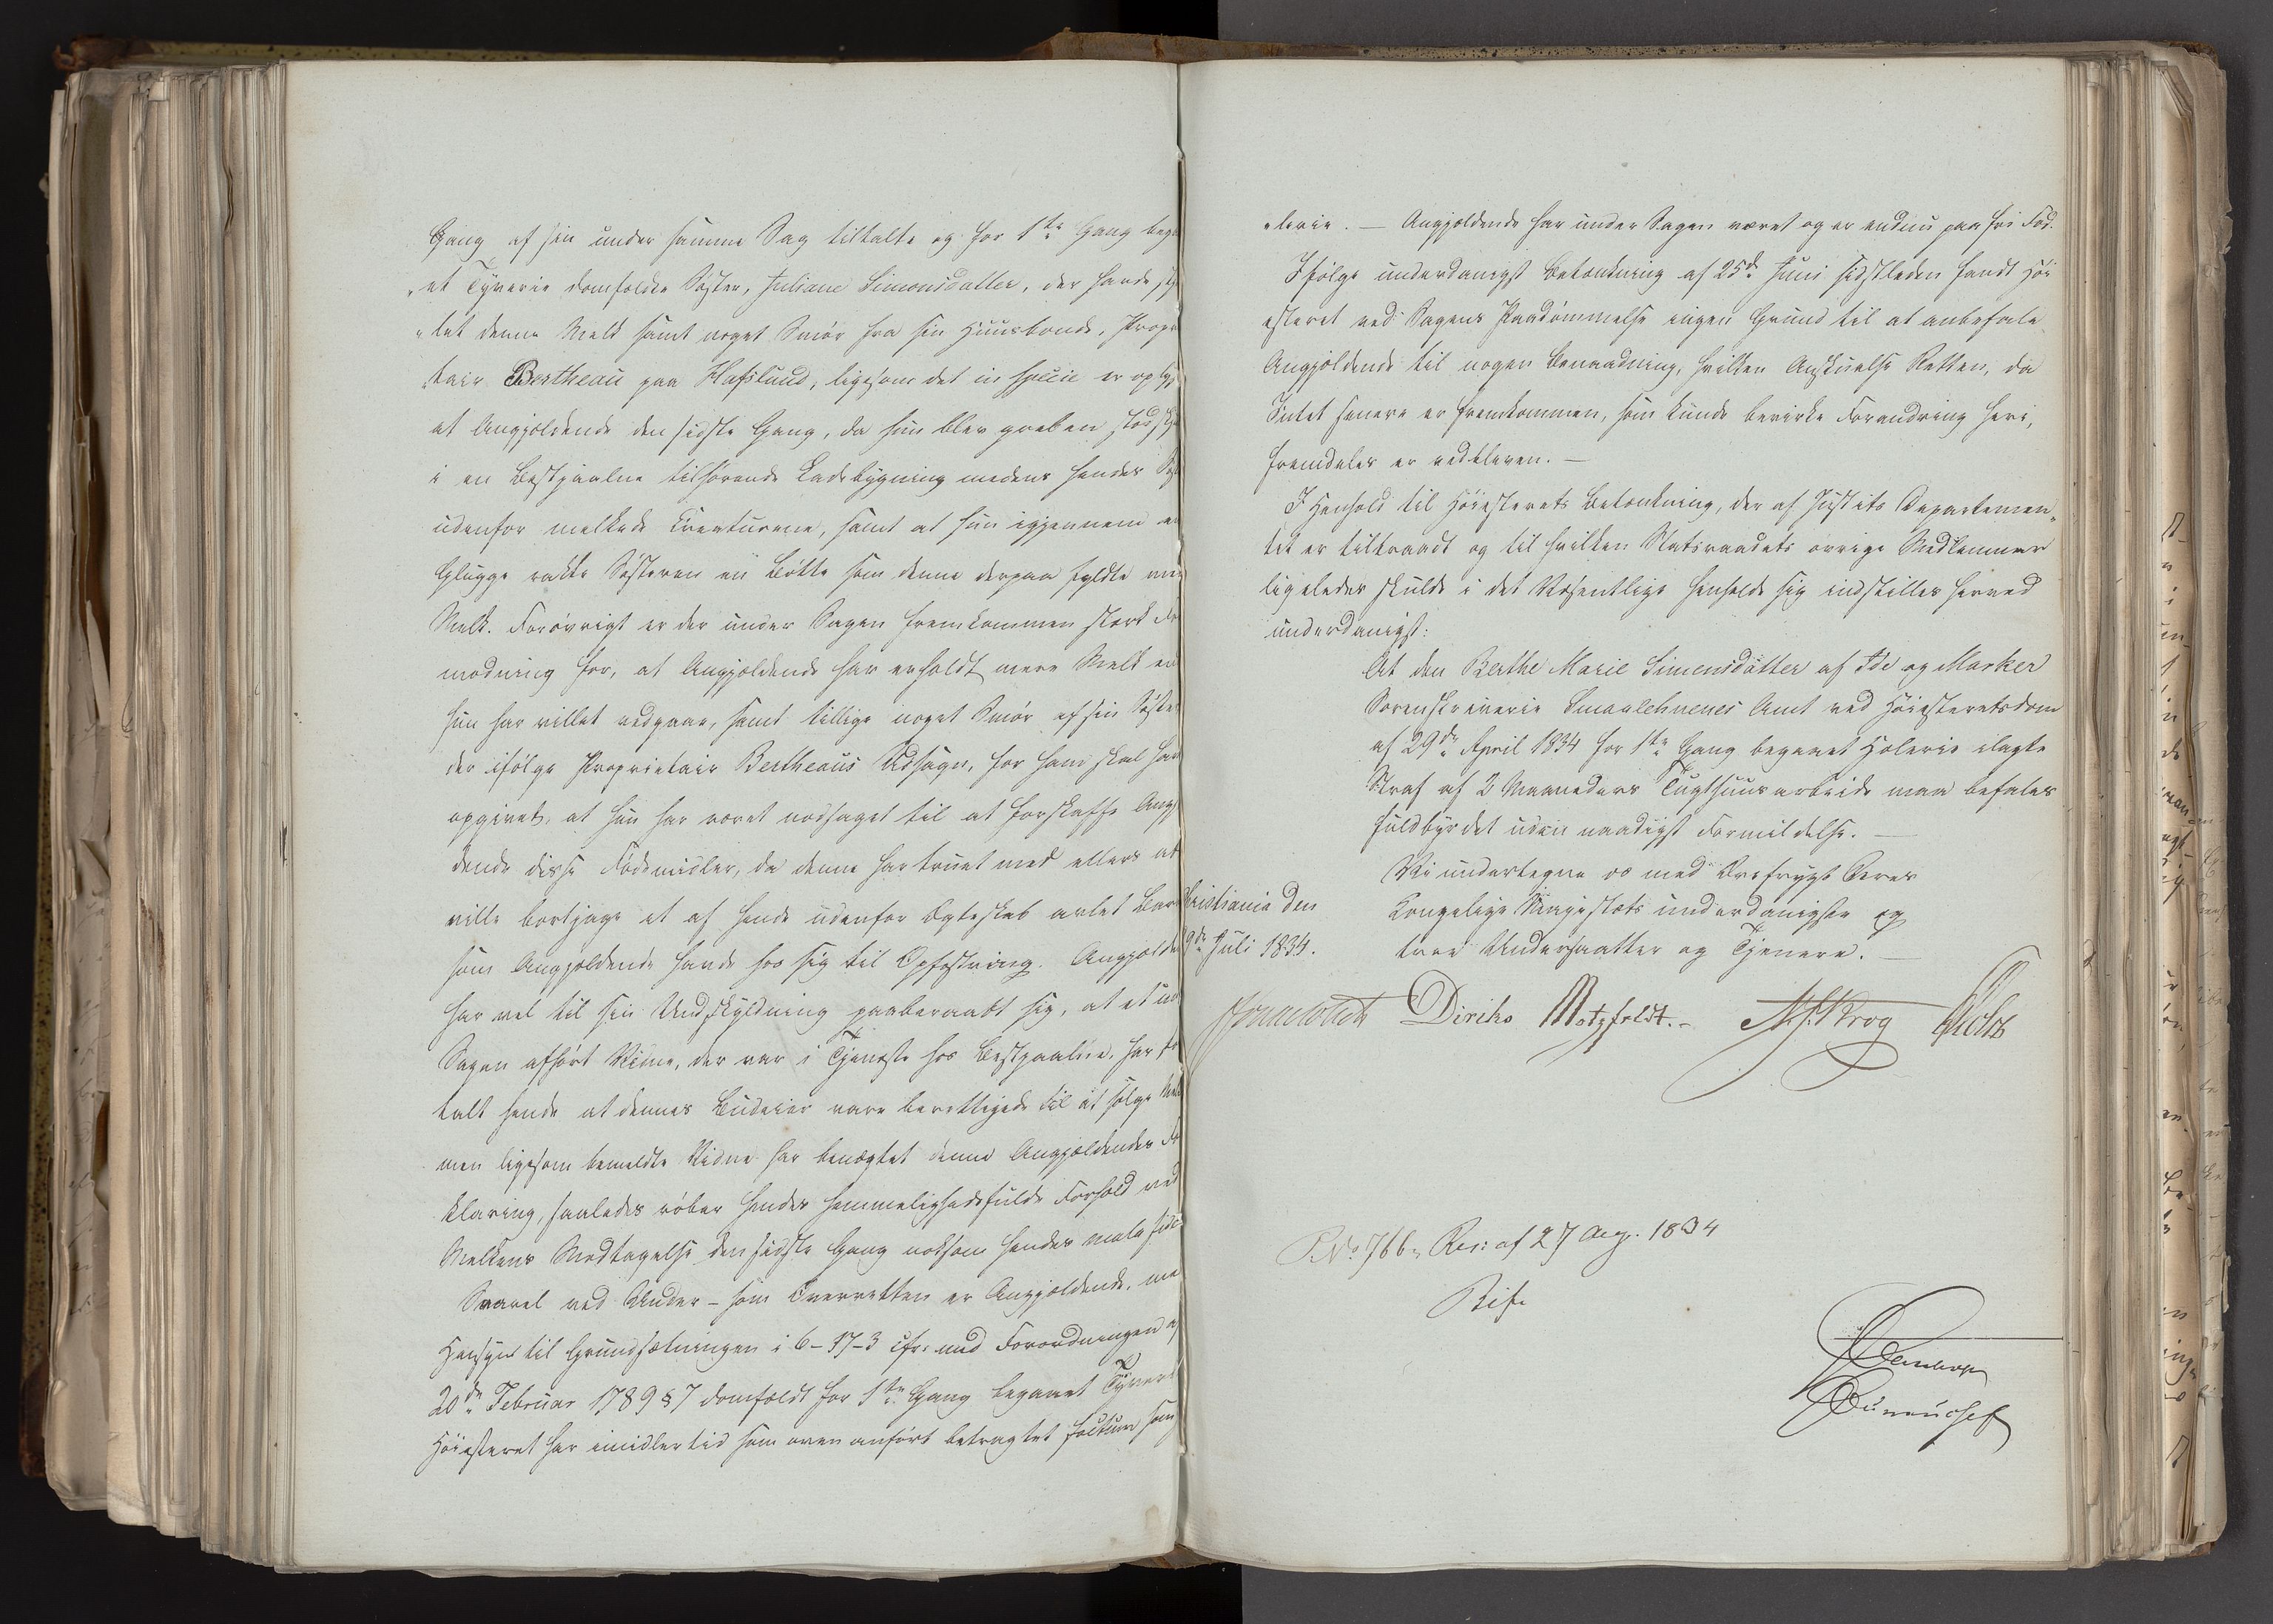 Gang af sin under samme Sag tiltalte og for 1ste Gang begaa
et Tyverie domfældte Søster, Juliane Simonsdatter, der havde stjaa
let denne Melk samt noget Smør fra sin Huusbonde, Proprie
tair Bertheau paa Hafslund, ligesom det in specie er oplyst
at Angjældende den sidste Gang, da hun blev greben stod
i en Bestjaalne tilhørende Ladebygning medens hendes Søst
udenfor melkede Creaturene, samt at hun igjennem en
Glugge rakte Søsteren en Bøtte som denne derpaa fyldte med
Melk. Forøvrigt er der under Sagen fremkommen stærk For
modning for, at Angjældende har erholdt mere Melk end
hun har villet vedgaae, samt tillige noget Smør af sin Søster
der ifølge Proprietair Bertheaus Udsagn, for ham skal have
opgivet, at hun har været nødsaget til at forskaffe Angjæl
dende disse Fødemidler, da denne har truet med ellers at
ville bortjage et af hende udenfor Ægteskab avlet Barn
som Angjældende havde hos sig til Opfostring. Angjældende
har vel til sin Undskyldning paaberaabt sig, at et under
Sagen afhørt Vidne, der var i Tjeneste hos Bestjaalne, har for
talt hende at dennes Budeier vare berettigede til at sælge Melk
men ligesom bemeldte Vidne har benægtet denne Angjældendes For
klaring, saaledes røber hendes hemmelighedsfulde Forhold ved
Melkens Modtagelse den sidste Gang noksom hendes mala fides
Saavel ved Under- som Overretten er Angjældende, med
Hensyn til Grundsætningen i 6-17-3 cfr: med Forordningen af
20de Februar 1789 § 7 domfældt for 1ste Gang begaaet Tyverie
Høiesteret har imidlertid som oven anført betragtet factum som
lerie. — Angjældende har under Sagen været og er endnu paa fri Fod.
Ifølge underdanigst Betænkning af 25de Juni sidstleden fandt Høi
esteret ved Sagens Paadømmelse ingen Grund til at anbefale
Angjældende til nogen Benaadning, hvilken Anskuelse Retten, da
Intet senere er fremkommen, som kunde bevirke Forandring heri,
fremdeles er vedbleven. —
I Henhold til Høiesterets Betænkning, der af Justits Departemen„
tet er tiltraadt og til hvilken Statsraadets øvrige Medlemmer
ligeledes skulde i det Væsentlige henholde sig indstilles herved
underdanigst:
At den Berthe Marie Simensdatter af Ide og Marker
Sorenskriverie Smaalehnenes Amt ved Høiesteretsdom
af 29de April 1834 for 1ste Gang begaaet Hælerie ilagte
Straf af 2 Maaneders Tugthuusarbeide maa befales
fuldbyrdet uden naadigst Formildelse. —
Vi undertegne os med Ærefrygt Deres
Christiania den Kongelige Majestæts underdanigste og
9de Juli 1834. troe Undersaatter og Tjenere. —
Diriks Motzfeldt. Krog
P.No 766, Res: af 27 Aug. 1834